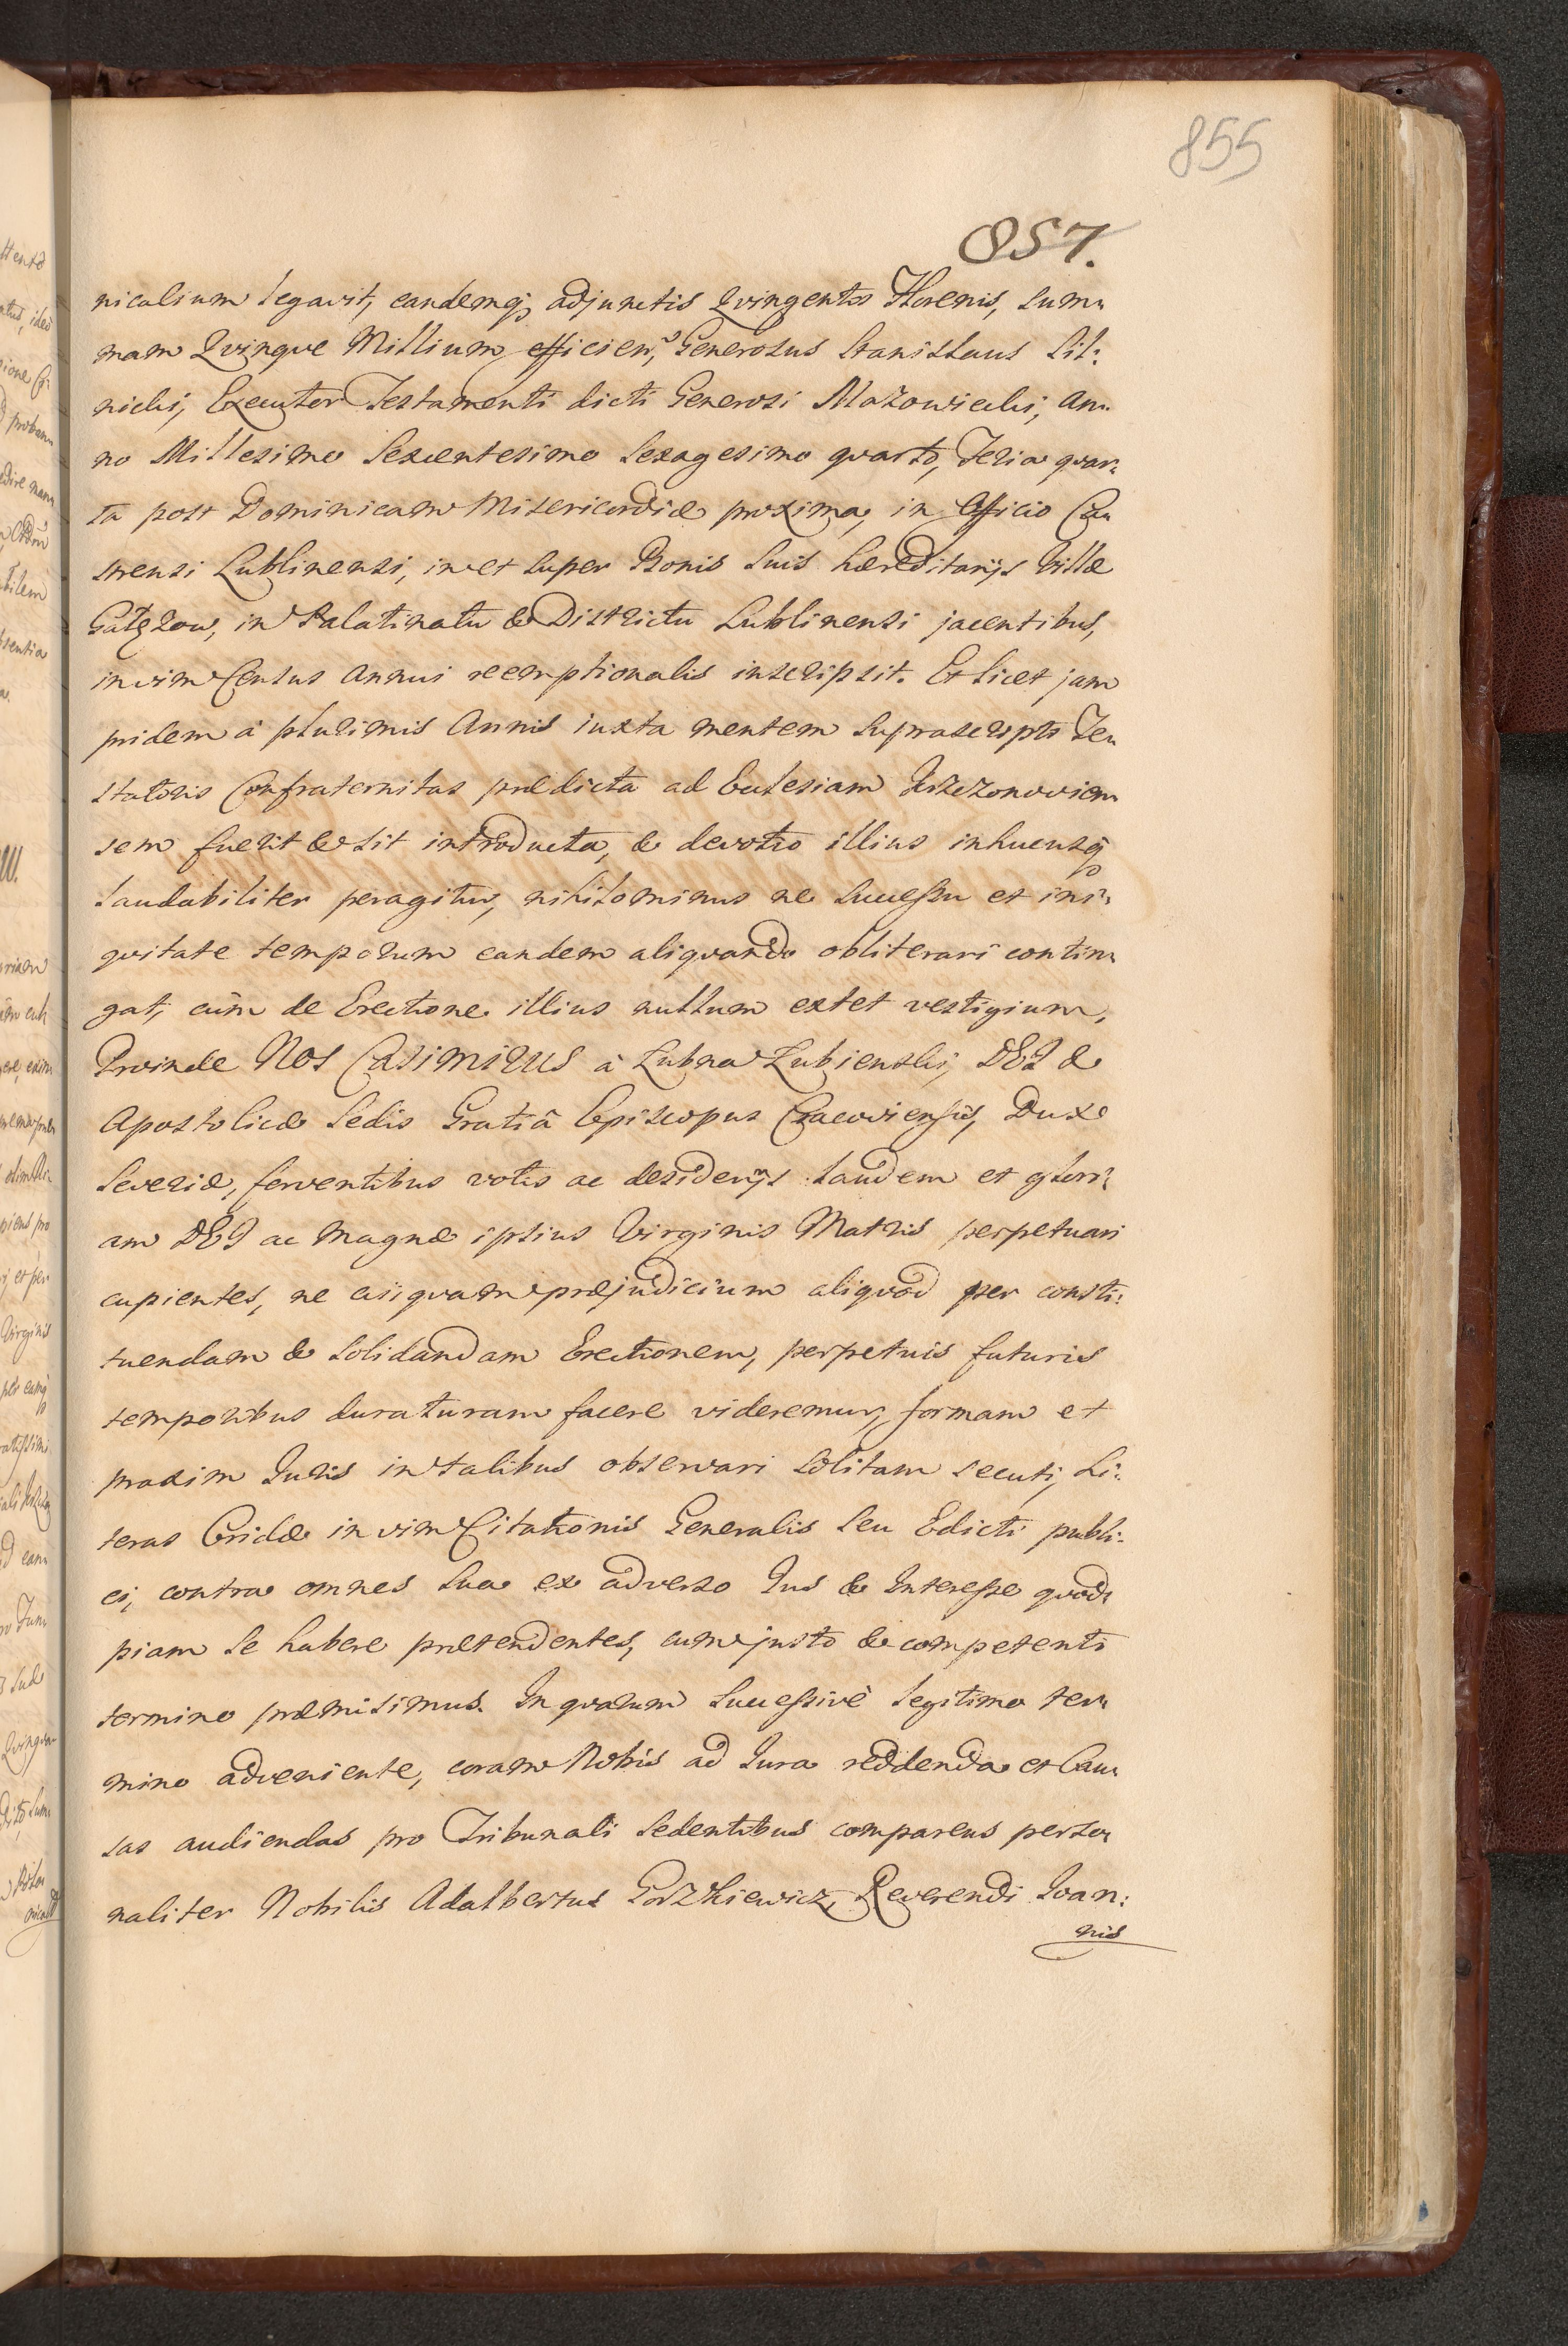 855
857.
nicalium legavit, eandemq3 adjunctis Qvingentos Florenis, sum„
mam Qvinqve Millium efficien, Generosus Stanislaus Lil:
nicki, Executor Testamenti dicti Generosi Mazowiecki, an„
no Millesimo Sexcentesimo Sexagesimo qvarto, Feria qvar„
ta post Dominicam Misericordiæ proxima, in Officio Ca„
strensi Lublinensi, in et super Bonis suis hæreditarijs Villæ
Gałęzow, in Palatinatu & Districtu Lublinensi jacentibus,
in vim Census Annui reemptionalis inscripsit. Et licet jam
pridem à plurimis Annis iuxta mentem suprascripti Te„
statoris Confraternitas prædicta ad Ecclesiam Krzczonovien„
sem fuerit & sit introducta, & devotio illius in hucusq3
laudabiliter peragitur, nihilominus ne successu et ini„
qvitate temporum eandem aliqvando obliterari contin„
gat, cùm de Erectione illius nullum extet vestigium,
Proinde NOS CASIMIRUS à Łubna Łubienski, DEI &
Apostolicæ Sedis Gratiâ Episcopus Cracoviensis, Dux
Severiæ, ferventibus votis ac desiderijs laudem et glori„
am DEI ac Magnæ ipsius Virginis Matris perpetuari
cupientes, ne cuiqvam præjudicium aliqvod per consti:
tuendam & solidandam Erectionem, perpetuis futuris
temporibus duraturam facere videremur, formam et
praxim Juris in talibus observari solitam secuti, Li:
teras Cridæ in vim Citationis Generalis seu Edicti publi:
ci, contra omnes sua ex adverso Jus & Interesse qvod„
piam se habere prætendentes, cum justo & competenti
termino præmisimus. In qvarum successivè legitimo ter„
mino adveniente, coram Nobis ad Jura reddenda et Cau„
sas audiendas pro Tribunali sedentibus comparens perso„
naliter Nobilis Adalbertus Gorzkiewicz, Reverendi Joan:
nis